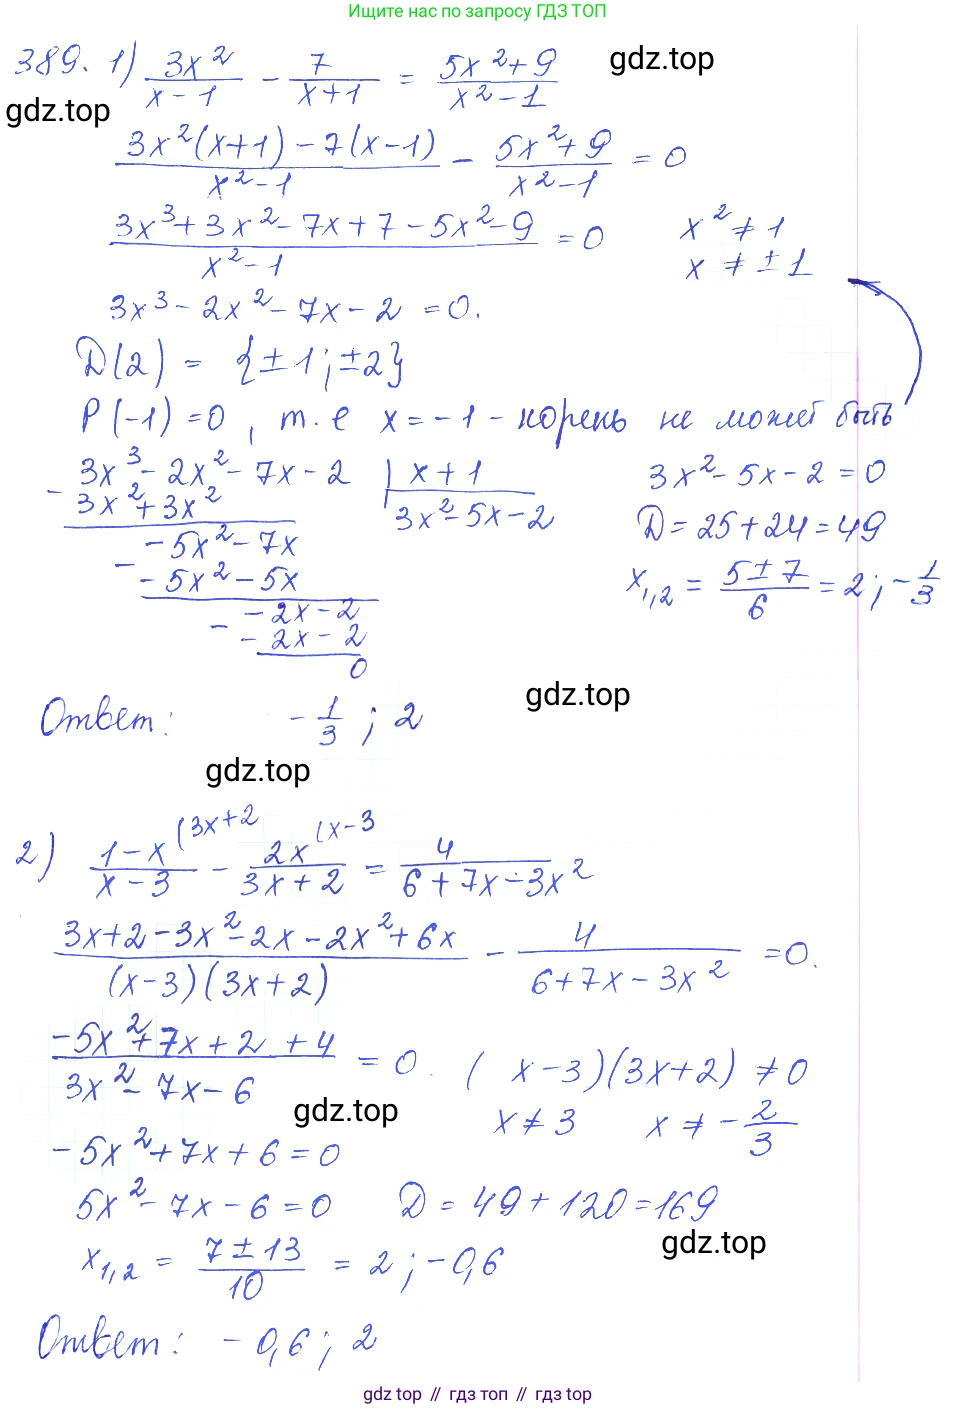 Ищите нас по запросу ГДЗ ТОП
389. 1) 3x²/(x-1) - 7/(x+1) = (5x²+9)/(x²-1)
gdz.top
gdz.top
(3x²(x+1)-7(x-1))/(x²-1) - (5x²+9)/(x²-1) = 0
(3x³+3x²-7x+7-5x²-9)/(x²-1) = 0
x² ≠ 1
x ≠ ±1
3x³-2x²-7x-2=0.
D(2) = {±1; ±2}
P(-1)=0, т.е x=-1 - корень не может быть
3x³-2x²-7x-2 | x+1
- 3x²+3x² | 3x²-5x-2
-5x²-7x
- -5x²-5x
-2x-2
- -2x-2
0
3x²-5x-2=0
D=25+24=49
x₁,₂ = (5±7)/6 = 2; -1/3
gdz.top
Ответ: -1/3; 2
gdz.top
2) (1-x)/(x-3) (3x+2 - 2x/(3x+2) (x-3 = 4/(6+7x-3x²)
(3x+2-3x²-2x-2x²+6x)/((x-3)(3x+2)) - 4/(6+7x-3x²) = 0.
(-5x²+7x+2+4)/(3x²-7x-6) = 0.
(x-3)(3x+2) ≠ 0
gdz.top
x≠3 x≠-2/3
-5x²+7x+6=0
5x²-7x-6=0 D=49+120=169
gdz.top
x₁,₂ = (7±13)/10 = 2; -0,6
Ответ: -0,6; 2
gdz top // гдз топ // gdz top